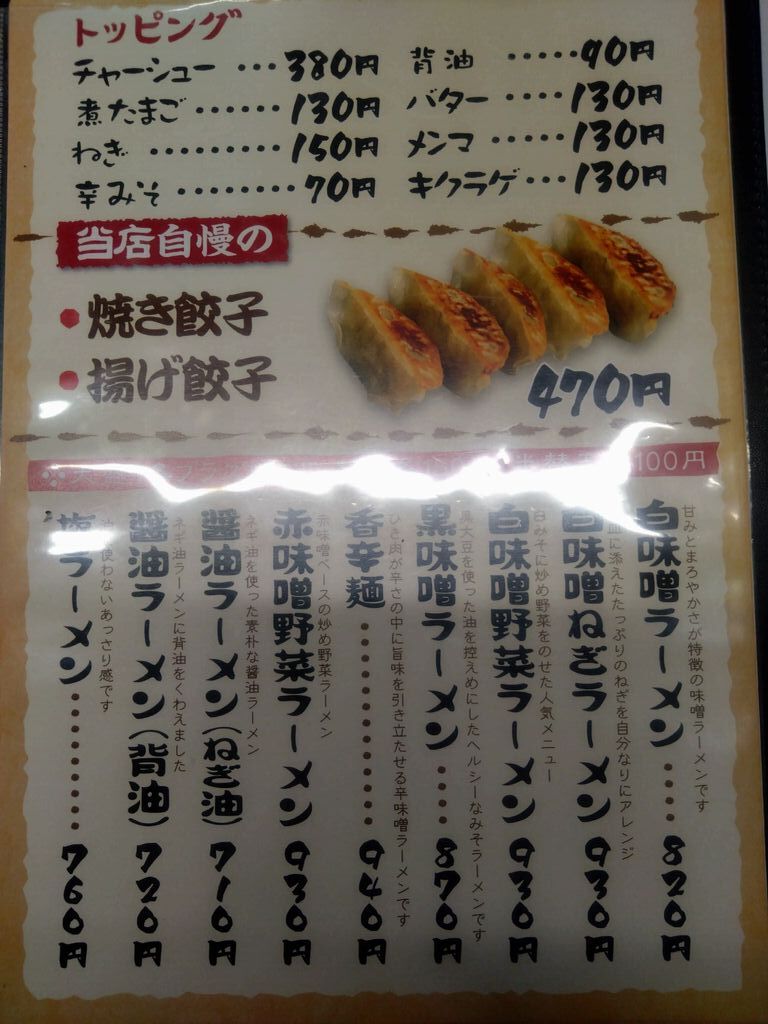 トッピング
チャーシュー …380円
煮たまご ……130円
ねぎ ………150円
辛みそ ………70円
背油 ……90円
バター ……130円
メンマ ……130円
キクラゲ …130円
当店自慢の
・焼き餃子
・揚げ餃子
470円
100円
白味噌ラーメン ……820円
甘みとまろやかさが特徴の味噌ラーメンです
白味噌ねぎラーメン 930円
皿に添えたたっぷりのねぎを自分なりにアレンジ
白味噌野菜ラーメン 930円
白みそに炒め野菜をのせた人気メニュー
黒味噌ラーメン ……870円
黒大豆を使った油を控えめにしたヘルシーなみそラーメンです
香辛麺 …………940円
ひき肉が辛さの中に旨味を引き立たせる辛味噌ラーメンです
赤味噌野菜ラーメン 930円
赤味噌ベースの炒め野菜ラーメン
醤油ラーメン(ねぎ油) 710円
ネギ油を使った素朴な醤油ラーメン
醤油ラーメン(背油) 720円
ネギ油ラーメンに背油をくわえました
塩ラーメン ………760円
使わないあっさり感です